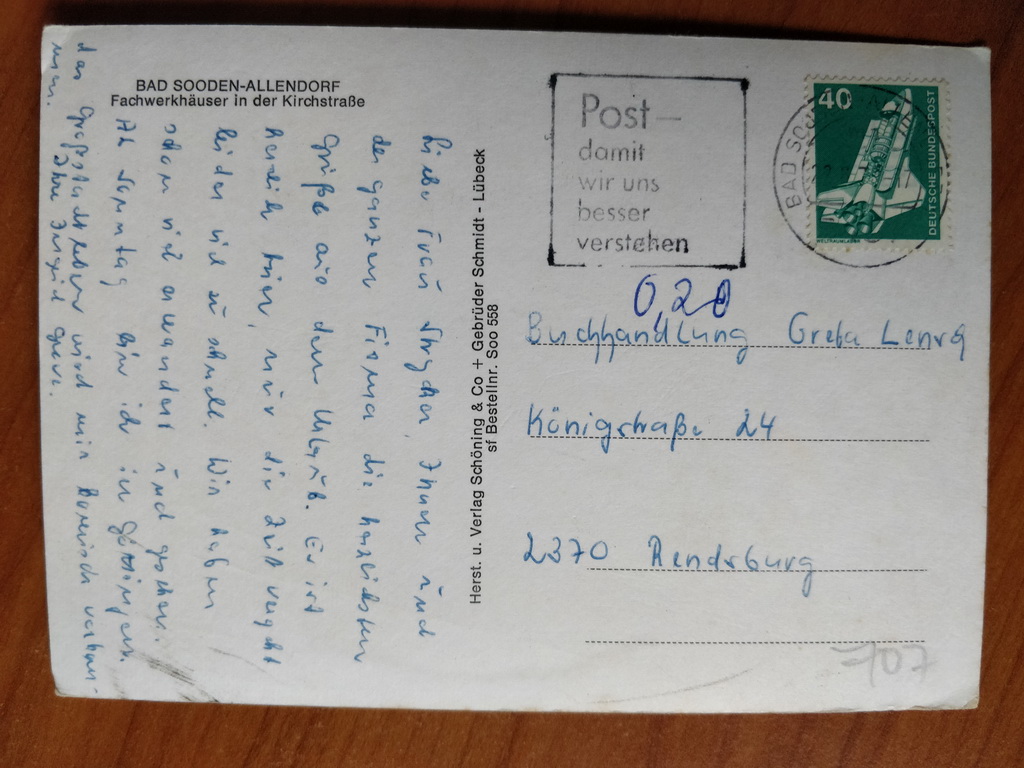 BAD SOODEN-ALLENDORF
Fachwerkhäuser in der Kirchstraße
Liebe Frau Ihnen und
der ganzen Firma die herzlichsten
Grüße aus dem Urlaub. Es ist
herrlich hier, nur die Zeit vergeht
leider viel zu schnell. Wir haben
schon viel und gesehen.
Ab Sonntag bin ich in Göttingen.
das Großstadtleben wird mir
Ihre
Herst. u. Verlag Schöning & Co + Gebrüder Schmidt - Lübeck
sf Bestellnr. Soo 558
Post –
damit
wir uns
besser
verstehen
BAD SOO
40
DEUTSCHE BUNDESPOST
WELTRAUMLABOR
0,20
Buchhandlung Greta
Königstraße 24
2370 Rendsburg
707